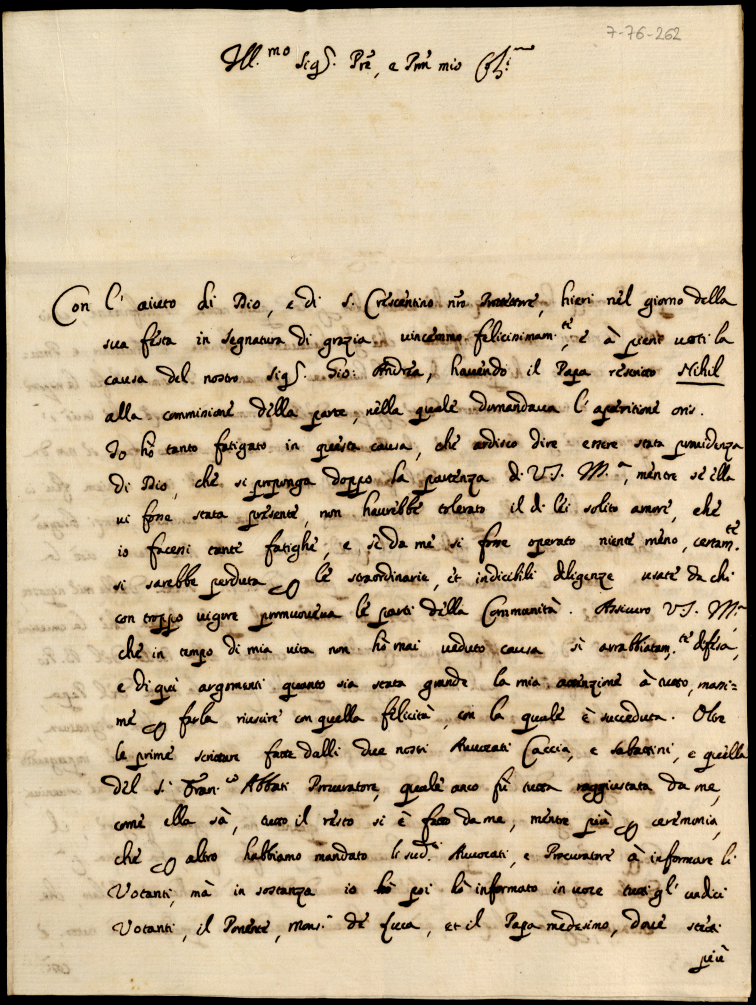 7-76-262
Ill.mo Sig.r Pre, e Prn mio
Con l' aiuto di Dio, e di S. Crescentino nro Protettore, hieri nel giorno della
sua festa in segnatura di grazia vincemmo felicissimam.te, e à pieni voti la
causa del nostro Sig.r Gio: Andrea, havendo il Papa rescritto Nihil
alla commissione della parte, nella quale domandava l' aperitione oris.
Io hò tanto fatigato in questa causa, che ardisco dire essere stata providenza
di Dio, che si proponga doppo la partenza di V.S. Ill.ma, mentre se ella
vi fosse stata presente, non haurebbe tolerato il di lei solito amore, che
io facessi tante fatighe, e se da me si fosse operato niente meno, certam.te
si sarebbe perduta le straordinarie, et indicibili diligenze usate da chi
con troppo vigore promuoveva le parti della Communità. Assicuro V.S. Ill.ma
che in tempo di mia vita non hò mai veduto causa sì arrabbiatam.te difesa,
e di quì argomenti quanto sia stata grande la mia attenzione à tutto, massi=
me farla riuscire con quella felicità, con la quale è succeduta. Oltre
le prime scritture fatte dalli due nostri Avvocati Caccia, e Sabattini, e quella
del S. Fran.co Abbati Procuratore, quale anco fù tutta raggiustata da me,
come ella sà, tutto il resto si è fatto da me, mentre più ceremonia,
che altro habbiamo mandato li sud.i Avvocati, e Procuratore à informare li
Votanti, mà in sostanza io poi hò informato in voce tutti gl' undici
Votanti, il Ponente, Mons.r de Luca, et il Papa medesimo, dove stetti
più